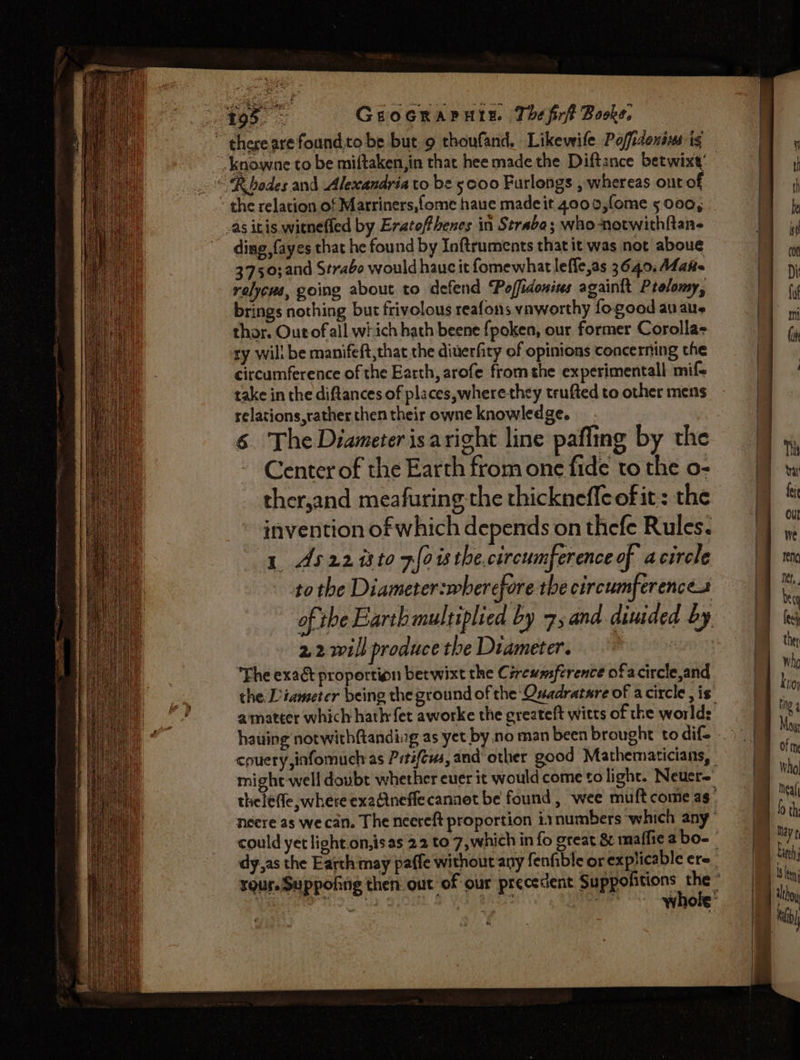 198 GEOGRAPHIE. The first Booke.
there are found to be but 9 thousand. Likewise Possidonius is
knowne to be mistaken, in that hee made the Distance betwixt
Rhodes and Alexandria to be 5000 Furlongs, whereas out of
the relation of Marriners, some haue made it 4000, some 5000,
as it is witnessed by Eratosthenes in Strabo; who notwithstan-
ding, sayes that he found by Instruments that it was not aboue
3750; and Strabo would haue it somewhat lesse, as 3640. Mau-
rolycus, going about to defend Possidonius against Ptolomy,
brings nothing but frivolous reasons vnworthy so good an au-
thor. Out of all which hath beene spoken, our former Corolla-
ry will be manifest, that the diuersity of opinions concerning the
circumference of the Earth, arose from the experimentall mis-
take in the distances of places, where they trusted to other mens
relations, rather then their owne knowledge.
6 The Diameter is a right line passing by the
Center of the Earth from one side to the o-
ther, and measuring the thicknesse of it: the
invention of which depends on these Rules.
1 As 22 is to 7, so is the circumference of a circle
to the Diameter: wherefore the circumference
of the Earth multiplied by 7, and diuided by
22 will produce the Diameter.
The exact proportion betwixt the Circumference of a circle, and
the Diameter being the ground of the Quadrature of a circle, is
a matter which hath set aworke the greatest witts of the world:
hauing notwithstanding as yet by no man been brought to dis-
couery, insomuch as Pitiscus, and other good Mathematicians,
might well doubt whether euer it would come to light. Neuer-
thelesse, where exactnesse cannot be found, wee must come as
neere as we can. The neerest proportion in numbers which any
could yet light on, is as 22 to 7, which in so great & massie a bo-
dy, as the Earth may passe without any sensible or explicable er-
rour. Supposing then out of our precedent Suppositions the
whole